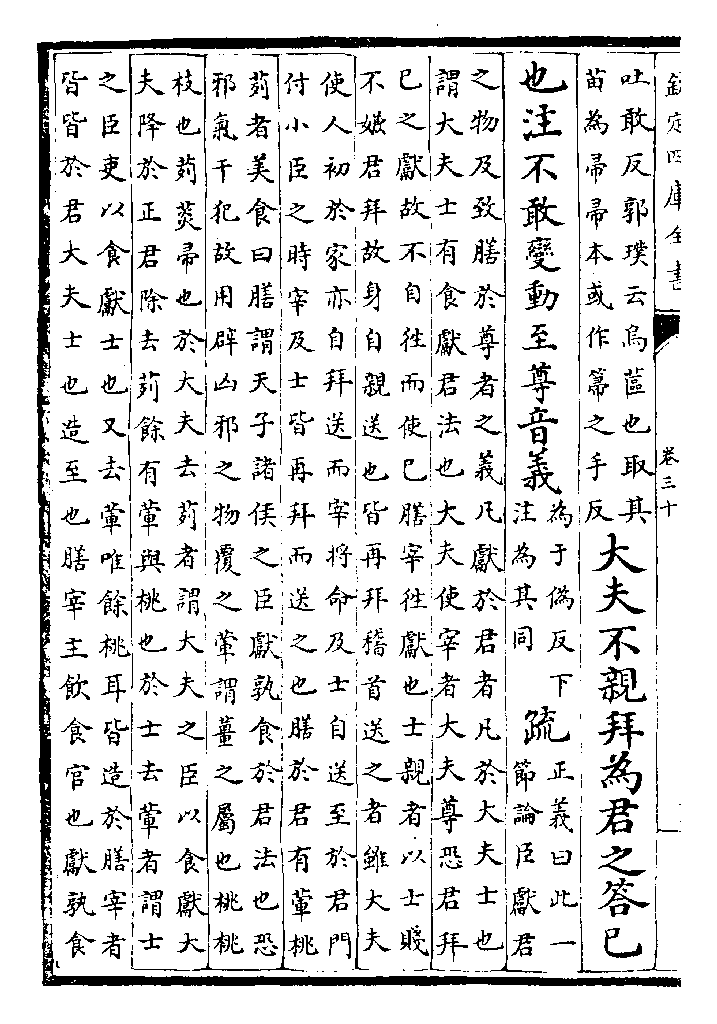 欽定四庫全書 卷三十
吐敢反郭璞云烏蓲也取其
苗為帚帚本或作箒之手反
大夫不親拜為君之答已
也注不敢變動至尊音義
為于偽反下
注為其同
疏
正義曰此一
節論臣獻君
之物及致膳於尊者之義凡獻於君者凡於大夫士也
謂大夫士有食獻君法也大夫使宰者大夫尊恐君拜
已之獻故不自往而使已膳宰往獻也士親者以士賤
不嫌君拜故身自親送也皆再拜稽首送之者雖大夫
使人初於家亦自拜送而宰將命及士自送至於君門
付小臣之時宰及士皆再拜而送之也膳於君有葷桃
茢者美食曰膳謂天子諸侯之臣獻孰食於君法也恐
邪氣干犯故用辟凶邪之物覆之葷謂薑之屬也桃桃
枝也茢菼帚也於大夫去茢者謂大夫之臣以食獻大
夫降於正君除去茢餘有葷與桃也於士去葷者謂士
之臣吏以食獻士也又去葷唯餘桃耳皆造於膳宰者
皆皆於君大夫士也造至也膳宰主飲食官也獻孰食